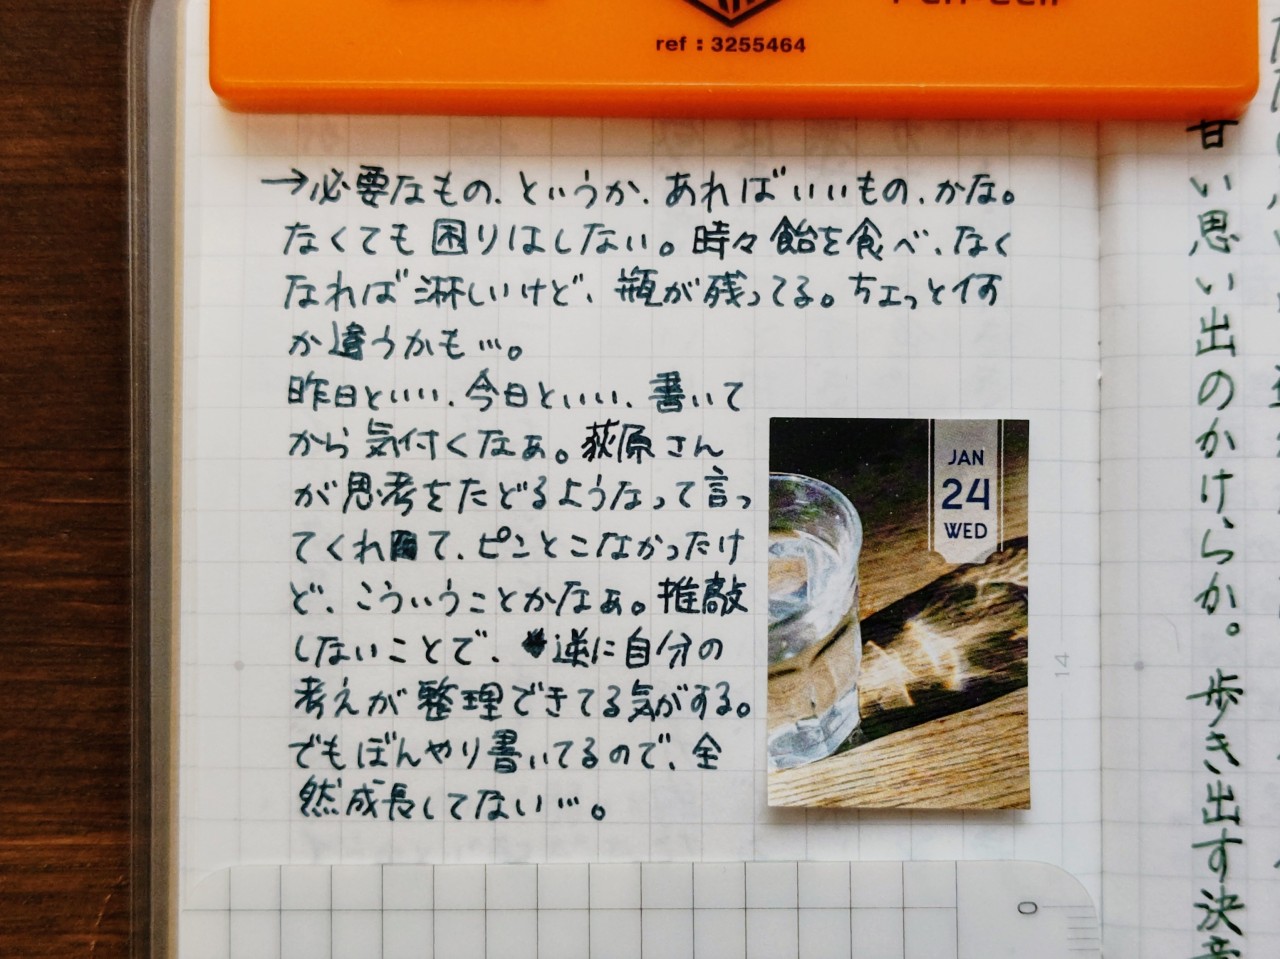 ref : 3255464
→必要なもの、というか、あればいいもの、かな。
なくても困りはしない。時々飴を食べ、なく
なれば淋しいけど、瓶が残ってる。ちょっと何
か違うかも…。
昨日といい、今日といい、書いて
から気付くなぁ。荻原さん
が思考をたどるようなって言っ
てくれて、ピンとこなかったけ
ど、こういうことかなぁ。推敲
しないことで、逆に自分の
考えが整理できてる気がする。
でもぼんやり書いてるので、全
然成長してない…。
JAN
24
WED
14
0
甘い思い出のかけらか。歩き出す決意